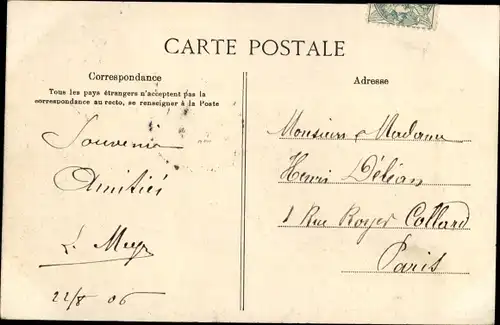 CARTE POSTALE
Correspondance
Tous les pays étrangers n'acceptent pas la
correspondance au recto, se renseigner à la Poste
Souvenir
Amitiés
22/8 06
Adresse
Monsieur & Madame
Henri
1 Rue Royer Collard
Paris